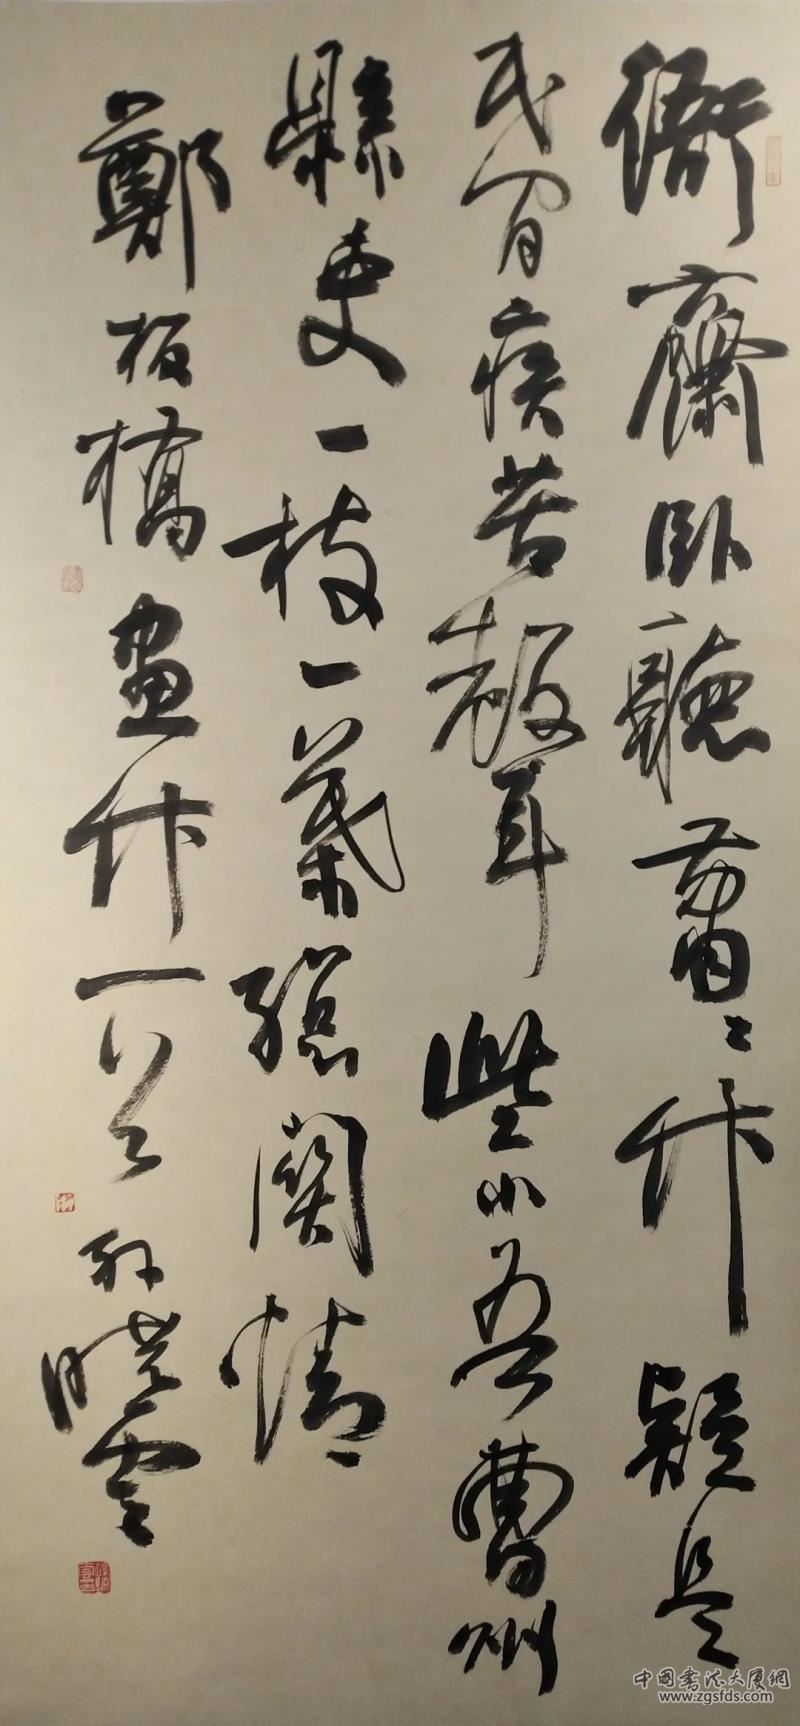 衙齋卧聽蕭〻竹疑是
民間疾苦聲些小吾曹州
縣吏一枝一葉總關情
鄭板橋畫竹一首 孫曉雲
中國書法大厦網
www.zgsfds.com